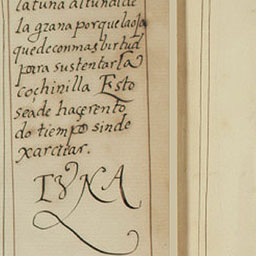 la tuna al tunal de
la grana porque la oja
quede con mas birtud
para sustentar la
cochinilla Esto
sea de haçer en to
do tiempo sin de
xar criar.
TVNA